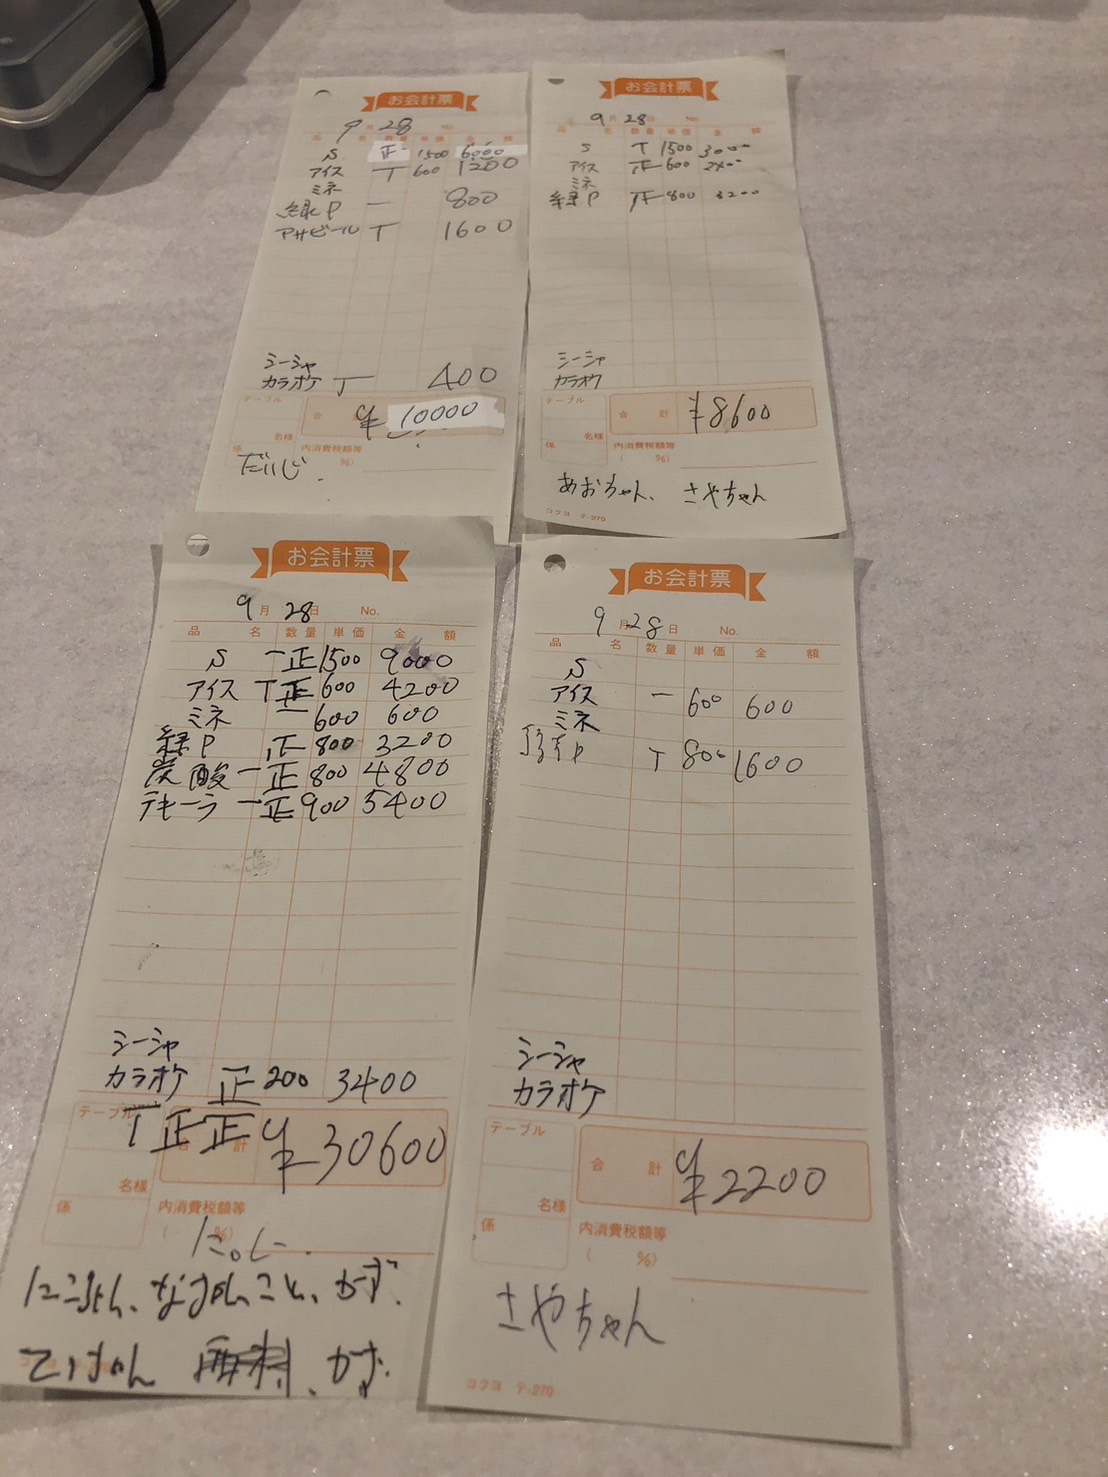 お会計票
9月28 No.
品 名 数量 単価 金 額
S 正一 1500 6000
アイス T 600 1200
ミネ
緑P 一 800
アサヒビール T 1600
シーシャ
カラオケ T 400
テーブル
合 ¥10000
名様
係 内消費税額等
( %)
だいじ.
お会計票
9月28日 No.
品 名 数量 単価 金 額
S T 1500 3000
アイス 正 600 2400
ミネ
緑P 正 800 3200
シーシャ
カラオケ
テーブル
合 計 ¥8600
名様
係 内消費税額等
( %)
あおちゃん、さやちゃん
コクヨ テ-270
お会計票
9月28日 No.
品 名 数量 単価 金 額
S 一正 1500 9000
アイス T正 600 4200
ミネ 一 600 600
緑P 正 800 3200
炭酸 一正 800 4800
テキーラ 一正 900 5400
シーシャ
カラオケ 正 200 3400
テーブル T正正
合 計 ¥30600
名様
係 内消費税額等
( %)
かず.
かず.
お会計票
9月28日 No.
品 名 数量 単価 金 額
S
アイス 一 600 600
ミネ
P T 800 1600
シーシャ
カラオケ
テーブル
合 計 ¥2200
名様
係 内消費税額等
( %)
さやちゃん
コクヨ テ-270